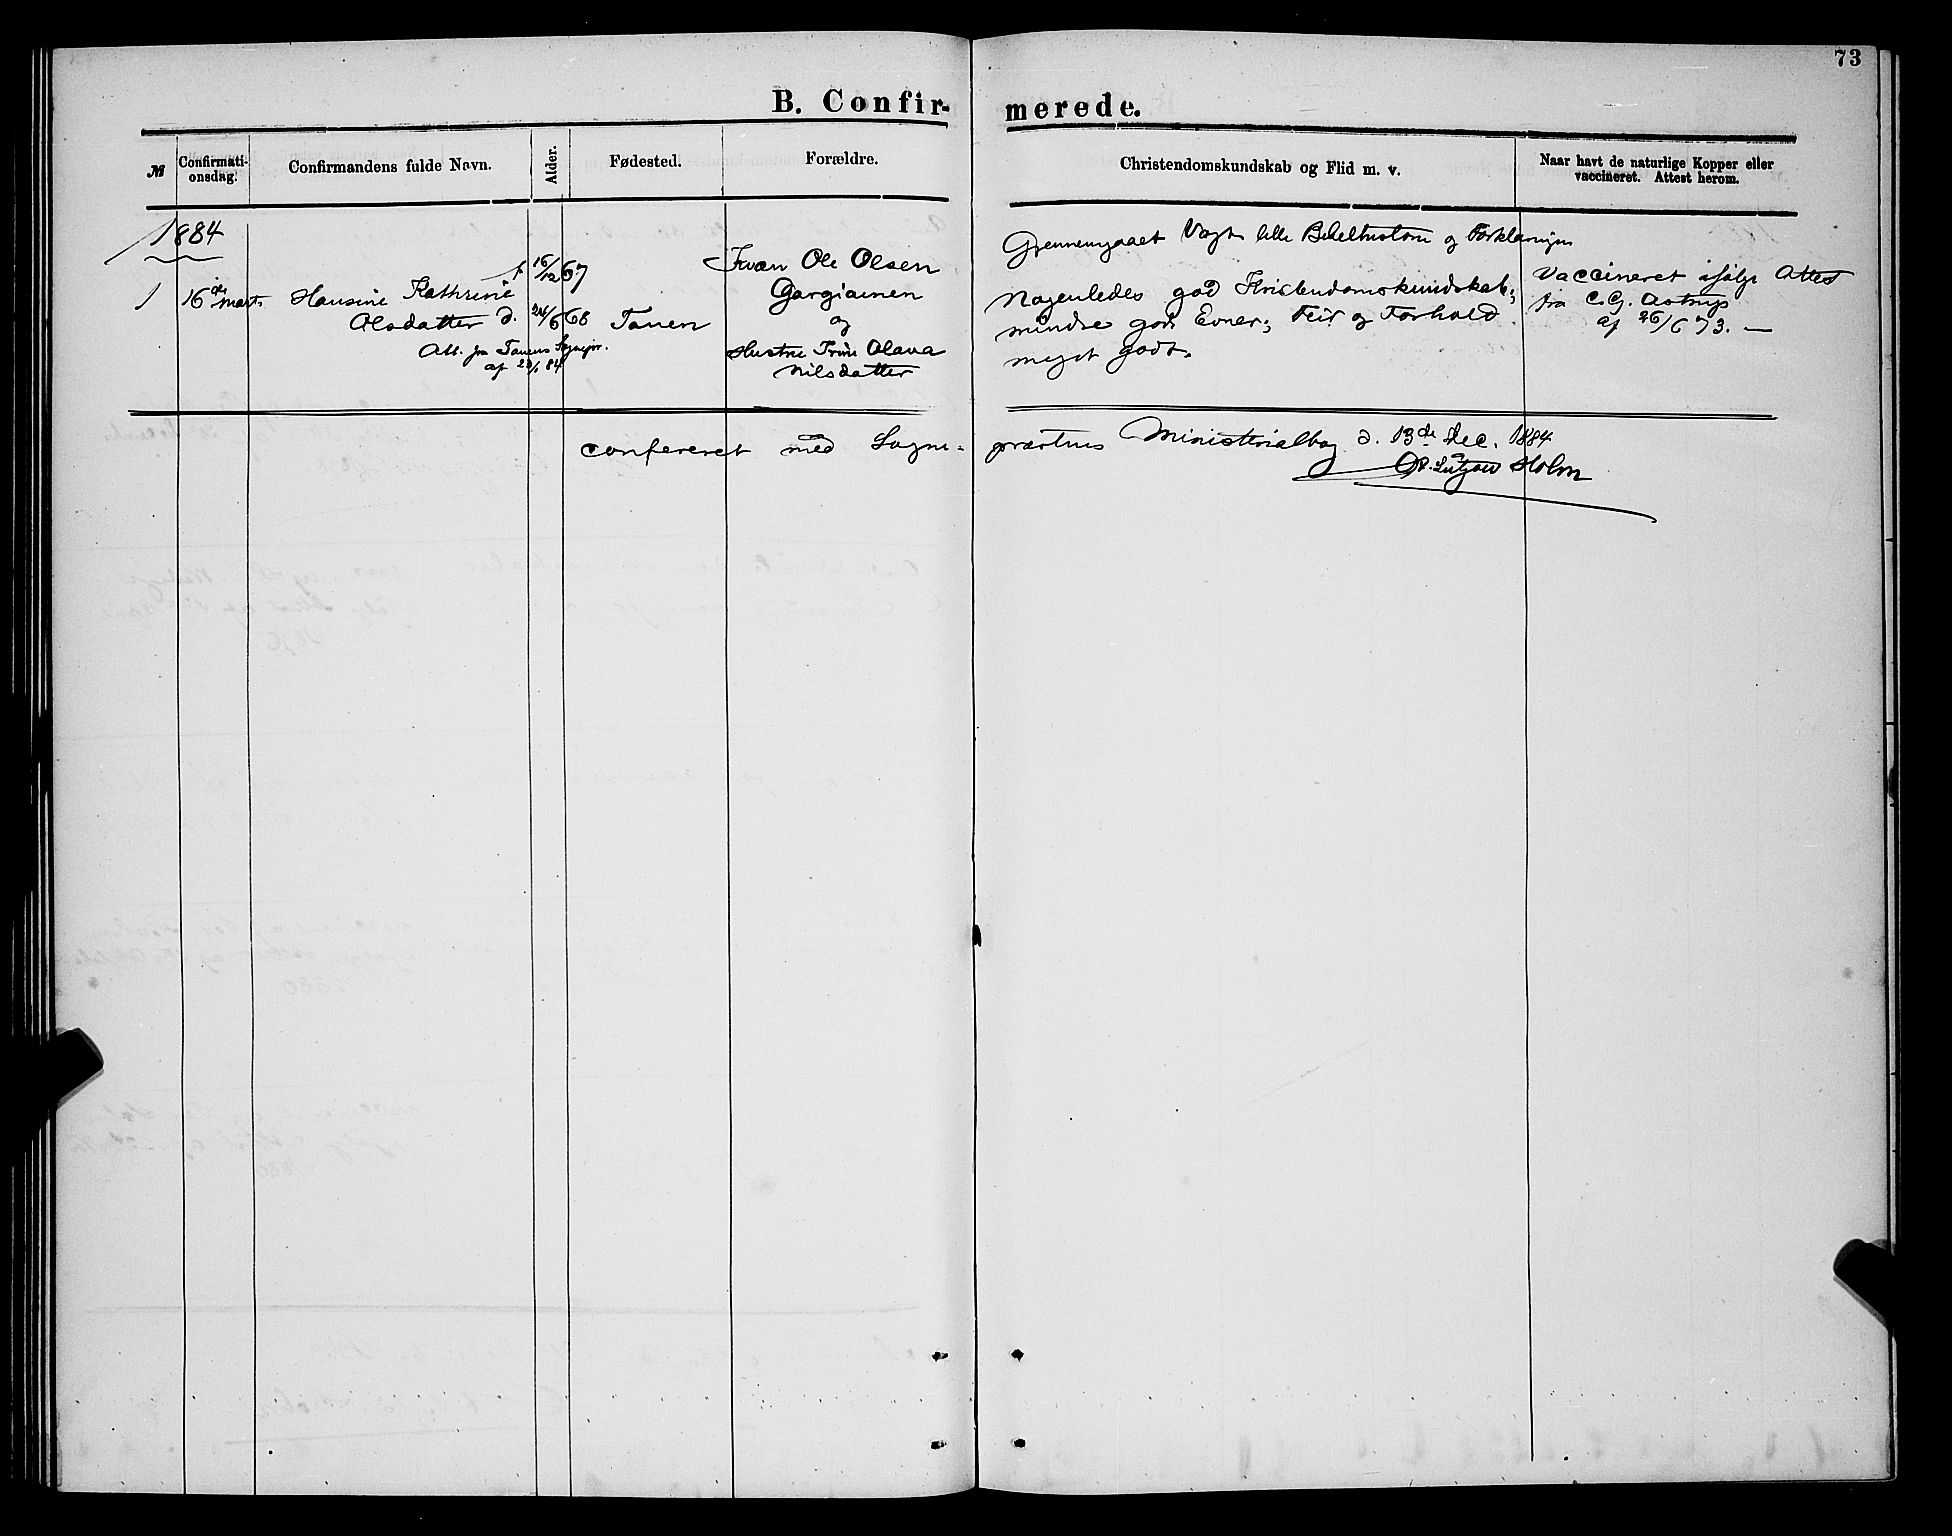 73
B. Confirmerede.
№
Confirmationsdag.
Confirmandens fulde Navn.
Alder.
Fødested.
Forældre.
Christendomskundskab og Flid m. v.
Naar havt de naturlige Kopper eller
vaccineret. Attest herom.
1884
1
16de Marts
Hansine Kathrine f. 16/12 67
Olsdatter d. 24/6 68
Att. fra Tanens Sognepr.
af 84
Tanen
Kvæn Ole Olsen
Gargiainen
og
Hustru Trine Olava
Nilsdatter
Gjennemgaaet Vogts lille Bibelhistorie og Forklaringen
Nogenledes god Kristendomskundskab;
mindre gode Evner; Flid og Forhold
meget godt.
Vaccineret ifølge Attest
fra C. G. Astrup
af 26/6 73. —
confereret med Sogne-
præstens Ministerialbog d. 13de Dec. 1884
Lützow Holm